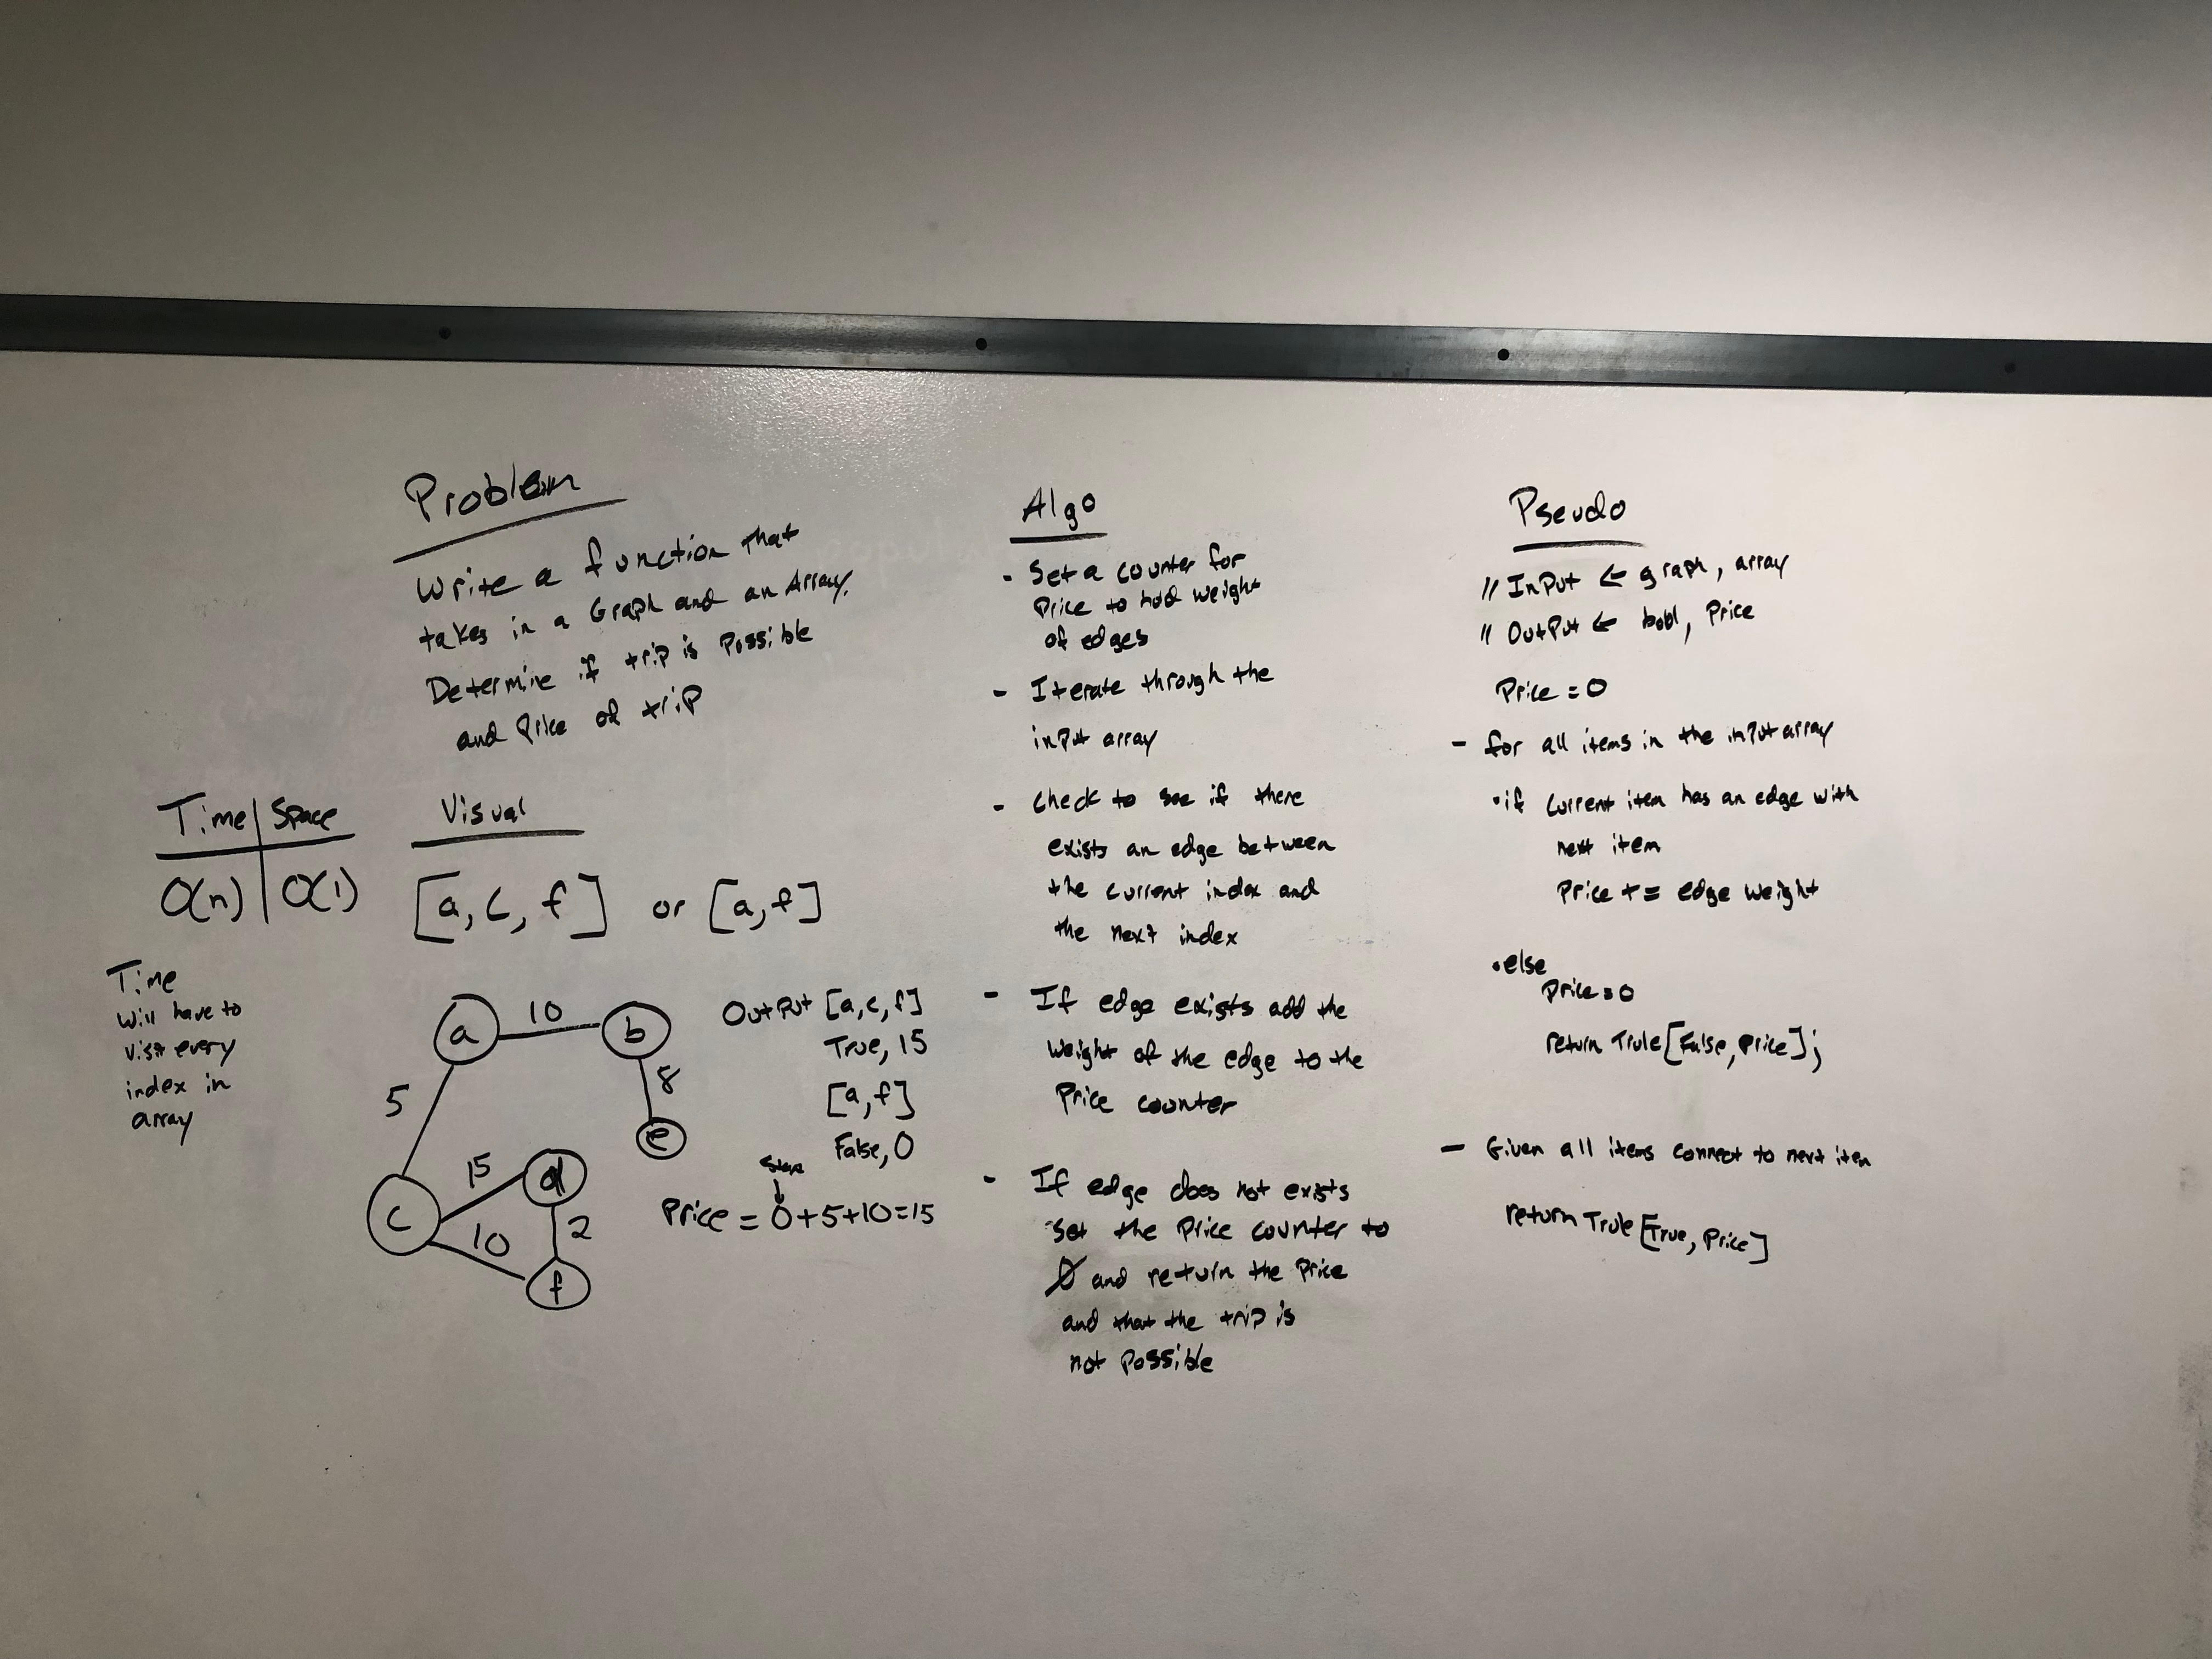 Problem
Write a function that
takes in a Graph and an Array.
Determine if trip is Possible
and Price of trip
Time | Space
O(n) | O(1)
Time
Will have to
visit every
index in
array
Visual
[a, c, f] or [a, f]
a 10 b
5
8
e
c
15
d
10
2
f
OutPut [a, c, f]
True, 15
[a, f]
False, 0
Price = 0+5+10=15
Algo
- Set a counter for
Price to hold weight
of edges
- Iterate through the
inPut array
- Check to see if there
exists an edge between
the current index and
the next index
- If edge exists add the
weight of the edge to the
Price counter
- If edge does not exists
set the Price counter to
0 and return the Price
and that the trip is
not Possible
Pseudo
// InPut ← graph, array
// OutPut ← bool, Price
Price = 0
- for all items in the inPut array
• if current item has an edge with
next item
Price += edge weight
• else
Price = 0
return Trule[False, Price];
- Given all items connect to next item
return Trule[True, Price]